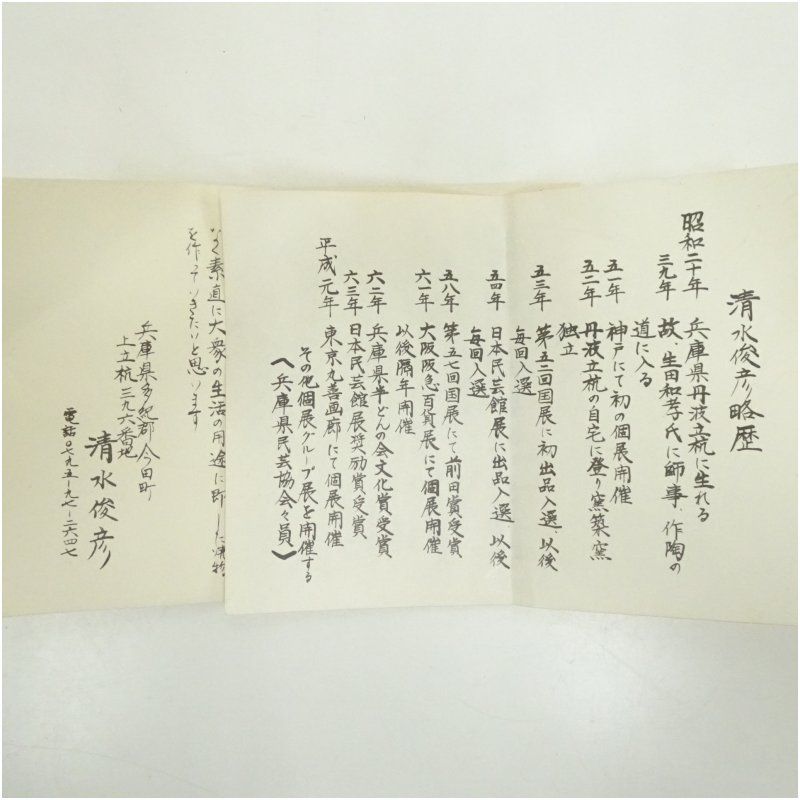 清水俊彦略歴
昭和二十年 兵庫県丹波立杭に生れる
三九年 故、生田和孝氏に師事、作陶の
道に入る
五一年 神戸にて初の個展開催
五二年 丹波立杭の自宅に登り窯築窯
独立
五三年 第五二回国展に初出品入選、以後
毎回入選
五四年 日本民芸館展に出品入選 以後
毎回入選
五八年 第五七回国展にて前田賞受賞
六一年 大阪阪急百貨展にて個展開催
以後隔年開催
六二年 兵庫県半どんの会文化賞受賞
六三年 日本民芸館展奨励賞受賞
平成元年 東京丸善画廊にて個展開催
その他個展グループ展を開催する
〈兵庫県民芸協会々員〉
なく素直に大衆の生活の用途に即した焼物
を作っていきたいと思います
兵庫県多紀郡今田町
上立杭三九六番地
清水俊彦
電話〇七九五ー九七ー二六四七